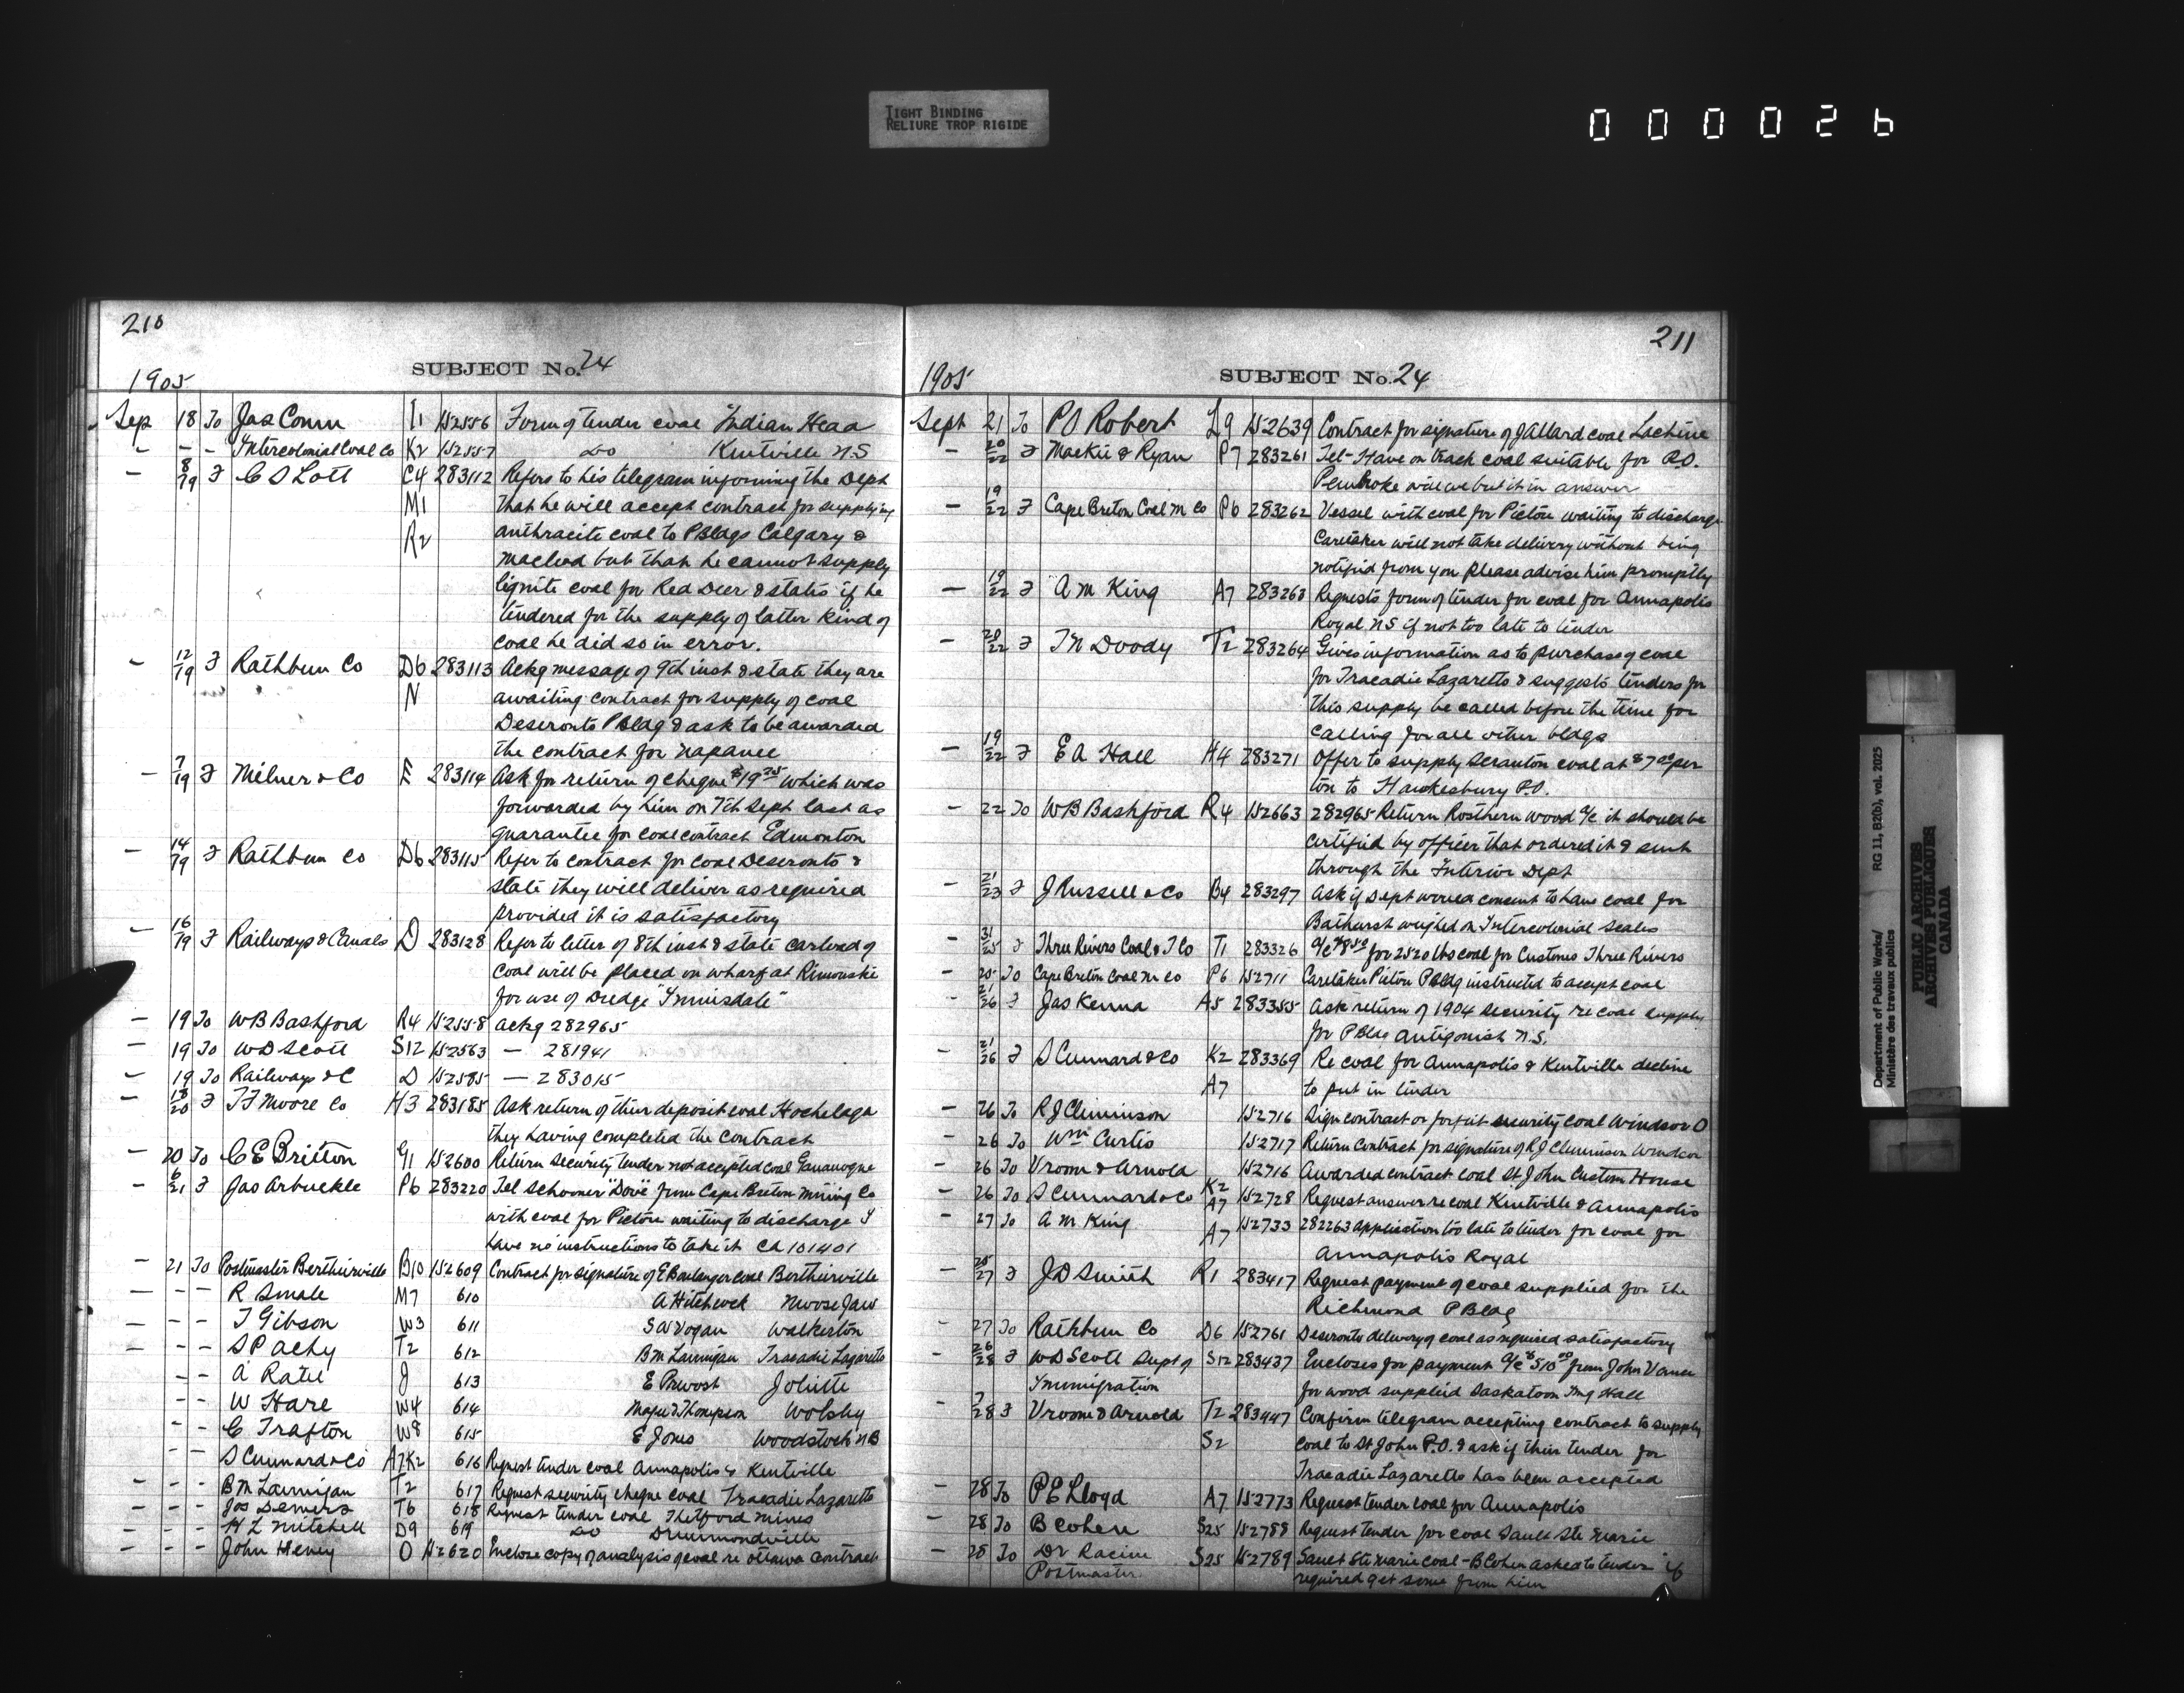 TIGHT BINDING
RELIURE TROP RIGIDE
000026
210
SUBJECT No. 24
1905
Sep 18 To Jas Conn I1 152556 Form of tender coal Indian Head
- - - Intercolonial Coal Co K2 152557 do Kentville N.S
- 8/19 F C S Lott C4 283112 Refers to his telegram informing the Dept
M1 that he will accept contract for supplying
R2 anthracite coal to PBldgs Calgary &
Macleod but that he cannot supply
lignite coal for Red Deer & states if he
tendered for the supply of latter kind of
coal he did so in error.
- 12/19 F Rathbun Co D6 283113 Ackg message of 9th inst & state they are
N awaiting contract for supply of coal
Deseronto PBldg & ask to be awarded
the contract for Napanee
- 7/19 F Milner & Co E 283114 Ask for return of cheque $19.75 which was
forwarded by him on 7th Sept last as
guarantee for coal contract Edmonton
- 14/19 F Rathbun Co D6 283115 Refer to contract for coal Deseronto &
state they will deliver as required
provided it is satisfactory
- 16/19 F Railways & Canals D 283128 Refer to letter of 8th inst & state carload of
coal will be placed on wharf at Rimouski
for use of Dredge "Innisdale"
- 19 To WB Bashford R4 152558 Ackg 282965
- 19 To WD Scott S12 152563 - 281941
- 19 To Railways & C D 152585 - 283015
- 18/20 F TF Moore Co H3 283185 Ask return of their deposit coal Hochelaga
they having completed the contract
- 20 To C E Britton G1 152600 Return security tender not accepted coal Gananoque
- 6/21 F Jas Arbuckle P6 283220 Tel schooner "Dove" from Cape Breton Mining Co
with coal for Pictou waiting to discharge I
have no instructions to take it CA 101401
- 21 To Postmaster Berthierville B10 152609 Contract for signature of E Boulanger coal Berthierville
- - - R Smale M7 610 A Hitchcock Moose Jaw
- - - T Gibson W3 611 SW Vogan Walkerton
- - - S P achy T2 612 BM Lannigan Tracadie Lazaretto
- - A Ratu J 613 E Prevost Joliette
- - W Hare W4 614 Magee & Thompson Wolsley
- - C Trafton W8 615 E Jones Woodstock NB
- - S Cunnard & Co A7K2 616 Request tender coal Annapolis & Kentville
- - - BM Lannigan T2 617 Request security cheque coal Tracadie Lazaretto
- - - Jos Demers T6 618 Request tender coal Thetford Mines
- - - H L Mitchell D9 619 do Drummondville
- - - John Heney O 152620 Enclose copy of analysis of coal re Ottawa contract
211
SUBJECT No. 24
1905
Sept 21 To PO Robert L9 152639 Contract for signature of J Allard coal Lachine
- 20/22 F Mackie & Ryan P7 283261 Tel - Have on track coal suitable for P.O.
Pembroke will we put it in answer
- 19/22 F Cape Breton Coal M Co P6 283262 Vessel with coal for Pictou waiting to discharge
Caretaker will not take delivery without being
notified from you please advise him promptly
- 19/22 F A M King A7 283263 Requests form of tender for coal for Annapolis
Royal NS if not too late to tender
- 20/22 F TN Doody T2 283264 Gives information as to purchase of coal
for Tracadie Lazaretto & suggests tenders for
this supply be called before the time for
calling for all other bldgs
- 19/22 F E A Hall H4 283271 Offer to supply Scranton coal at $7.00 per
ton to Hawkesbury P.O.
- 22 To WB Bashford R4 152663 282965 Return Rosthern wood a/c it should be
certified by officer that ordered it & sent
through the Interior Dept
- 21/23 F J Russell & Co B4 283297 Ask if Dept would consent to have coal for
Bathurst weighed on Intercolonial scales
- 31/25 F Three Rivers Coal & I Co T1 283326 a/c $8.50 for 2520 lbs coal for Customs Three Rivers
- 25 To Cape Breton Coal M Co P6 152711 Caretaker Pictou PBldg instructed to accept coal
- 21/26 F Jas Kenna A5 283355 Ask return of 1904 security re coal supply
for PBldg Antigonish N.S.
- 21/26 F S Cunnard & Co K2 283369 Re coal for Annapolis & Kentville decline
A7 to put in tender
- 26 To R J Cleminson 152716 Sign contract or forfeit security coal Windsor O
- 26 To Wm Curtis 152717 Return contract for signature of RJ Cleminson Windsor
- 26 To Vroom & Arnold 152716 Awarded contract coal St John Custom House
- 26 To S Cunnard & Co K2 A7 152728 Request answer re coal Kentville & Annapolis
- 27 To A M King A7 152733 282263 application too late to tender for coal for
Annapolis Royal
- 25/27 F J D Smith R1 283417 Request payment of coal supplied for the
Richmond PBldg
- 27 To Rathbun Co D6 152761 Deseronto delivery of coal as required satisfactory
- 26/28 F WD Scott Supt of S12 283437 Encloses for payment a/c $510.00 from John Vanee
Immigration for wood supplied Saskatoon Img Hall
- 7/28 F Vroom & Arnold T2 283447 Confirm telegram accepting contract to supply
S2 coal to St John P.O. & ask if their tender for
Tracadie Lazaretto has been accepted
- 28 To P E Lloyd A7 152773 Request tender coal for Annapolis
- 28 To B Cohen S25 152788 Request tender for coal Sault Ste Marie
- 28 To Dr Racine S25 152789 Sault Ste Marie coal - B Cohen asked to tender if
Postmaster required get some from him
Department of Public Works/ RG 11, B2(b), vol. 2025
Ministère des travaux publics
PUBLIC ARCHIVES
ARCHIVES PUBLIQUES
CANADA